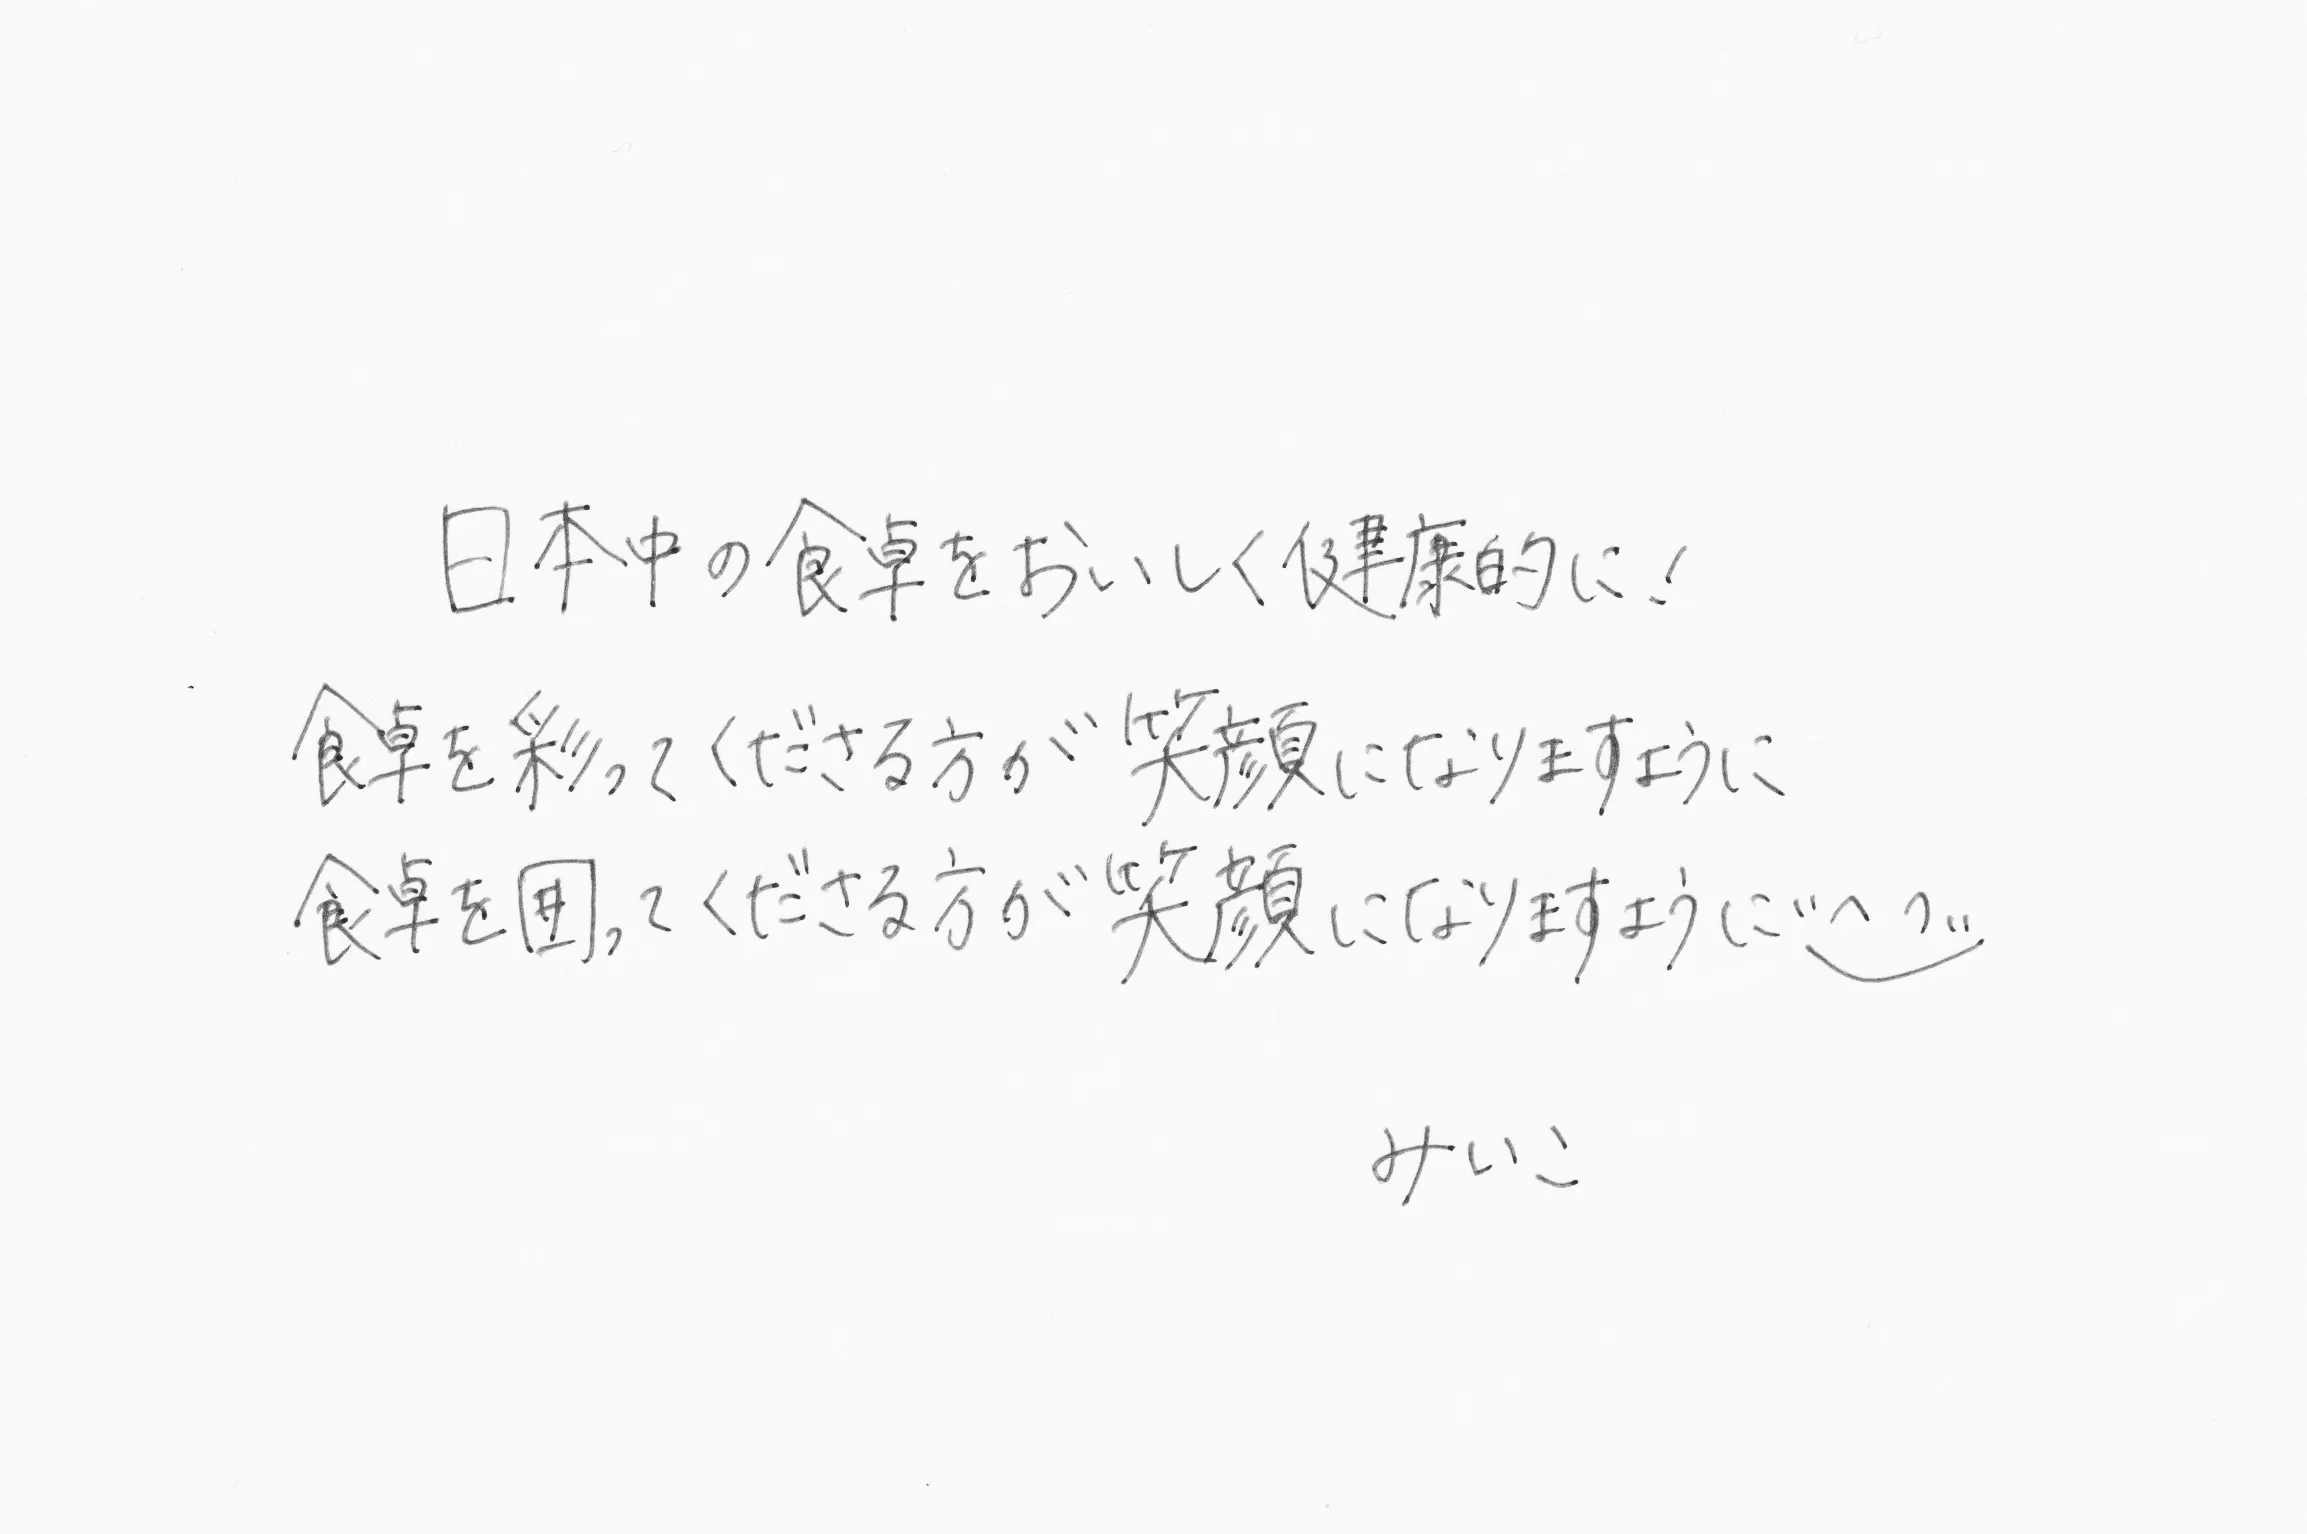 日本中の食卓をおいしく健康的に!
食卓を彩ってくださる方が笑顔になりますように
食卓を囲ってくださる方が笑顔になりますように
みいこ